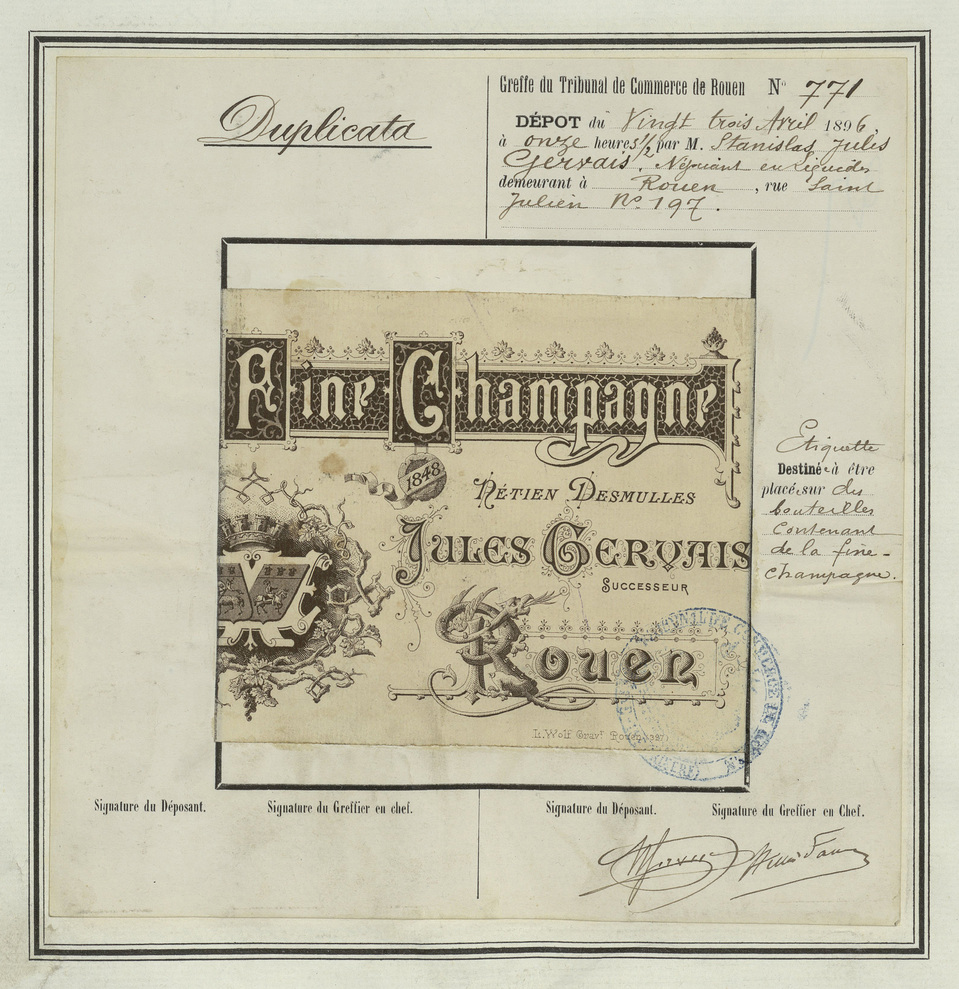 Duplicata
Greffe du Tribunal de Commerce de Rouen N° 771
DÉPOT du Vingt trois Avril 1896,
à onze heures 1/2 par M. Stanislas Jules
Gervais, Négociant en Liquides
demeurant à Rouen, rue Saint
Julien N° 197.
Fine Champagne
1848
NÉTIEN DESMULLES
JULES GERVAIS
SUCCESSEUR
Rouen
L. Wolf Gravr Rouen
Etiquette
Destiné à être
placé sur des
bouteilles
contenant
de la fine-
champagne.
Signature du Déposant. Signature du Greffier en chef.
Signature du Déposant. Signature du Greffier en Chef.